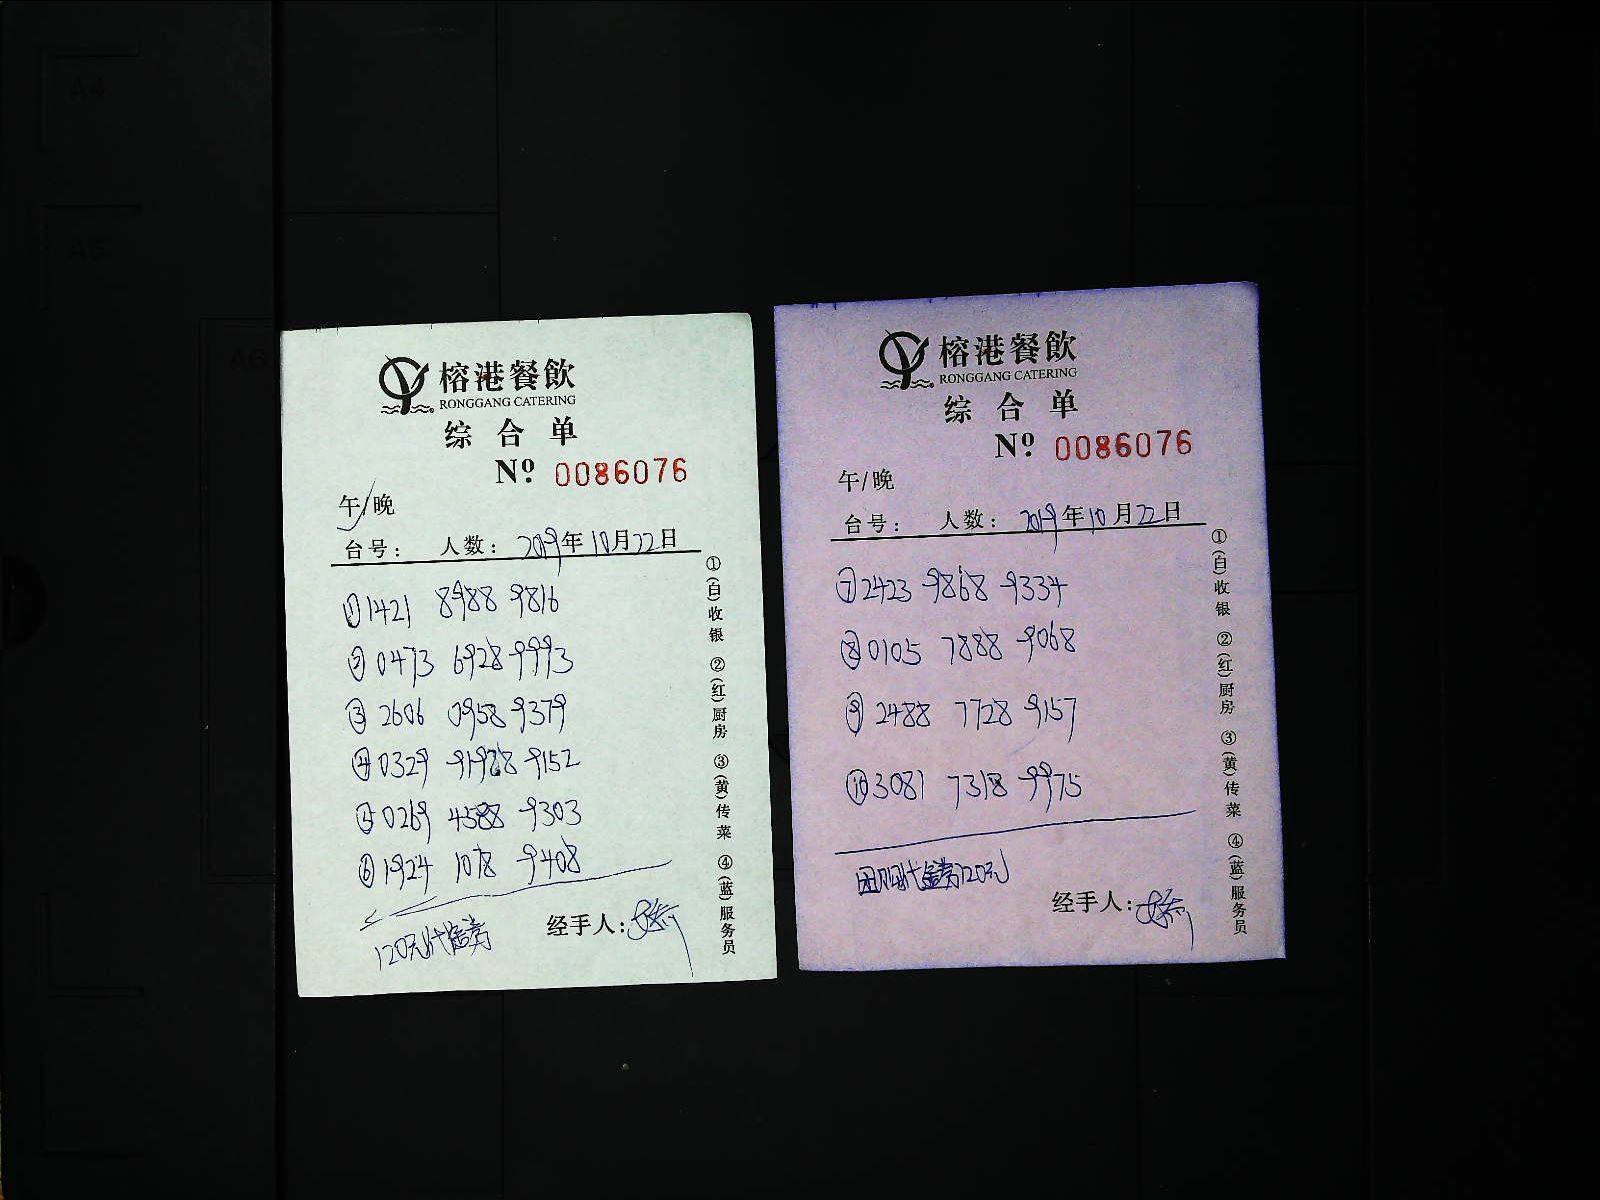 榕港餐飲
RONGGANG CATERING
综合单
Nº 0086076
午/晚
台号: 人数: 2019年10月22日
①1421 8988 9816
②0473 6928 9993
③2606 0958 9379
④0329 91988 9152
⑤0269 4588 9303
⑥1924 1078 9408
120元代金券
经手人:
①(白)收银 ②(红)厨房 ③(黄)传菜 ④(蓝)服务员
榕港餐飲
RONGGANG CATERING
综合单
Nº 0086076
午/晚
台号: 人数: 2019年10月22日
⑦2423 9868 9334
⑧0105 7888 9068
⑨2488 7728 9157
⑩3081 7318 9975
团购代金券120元
经手人:
①(白)收银 ②(红)厨房 ③(黄)传菜 ④(蓝)服务员
A4
A5
A6